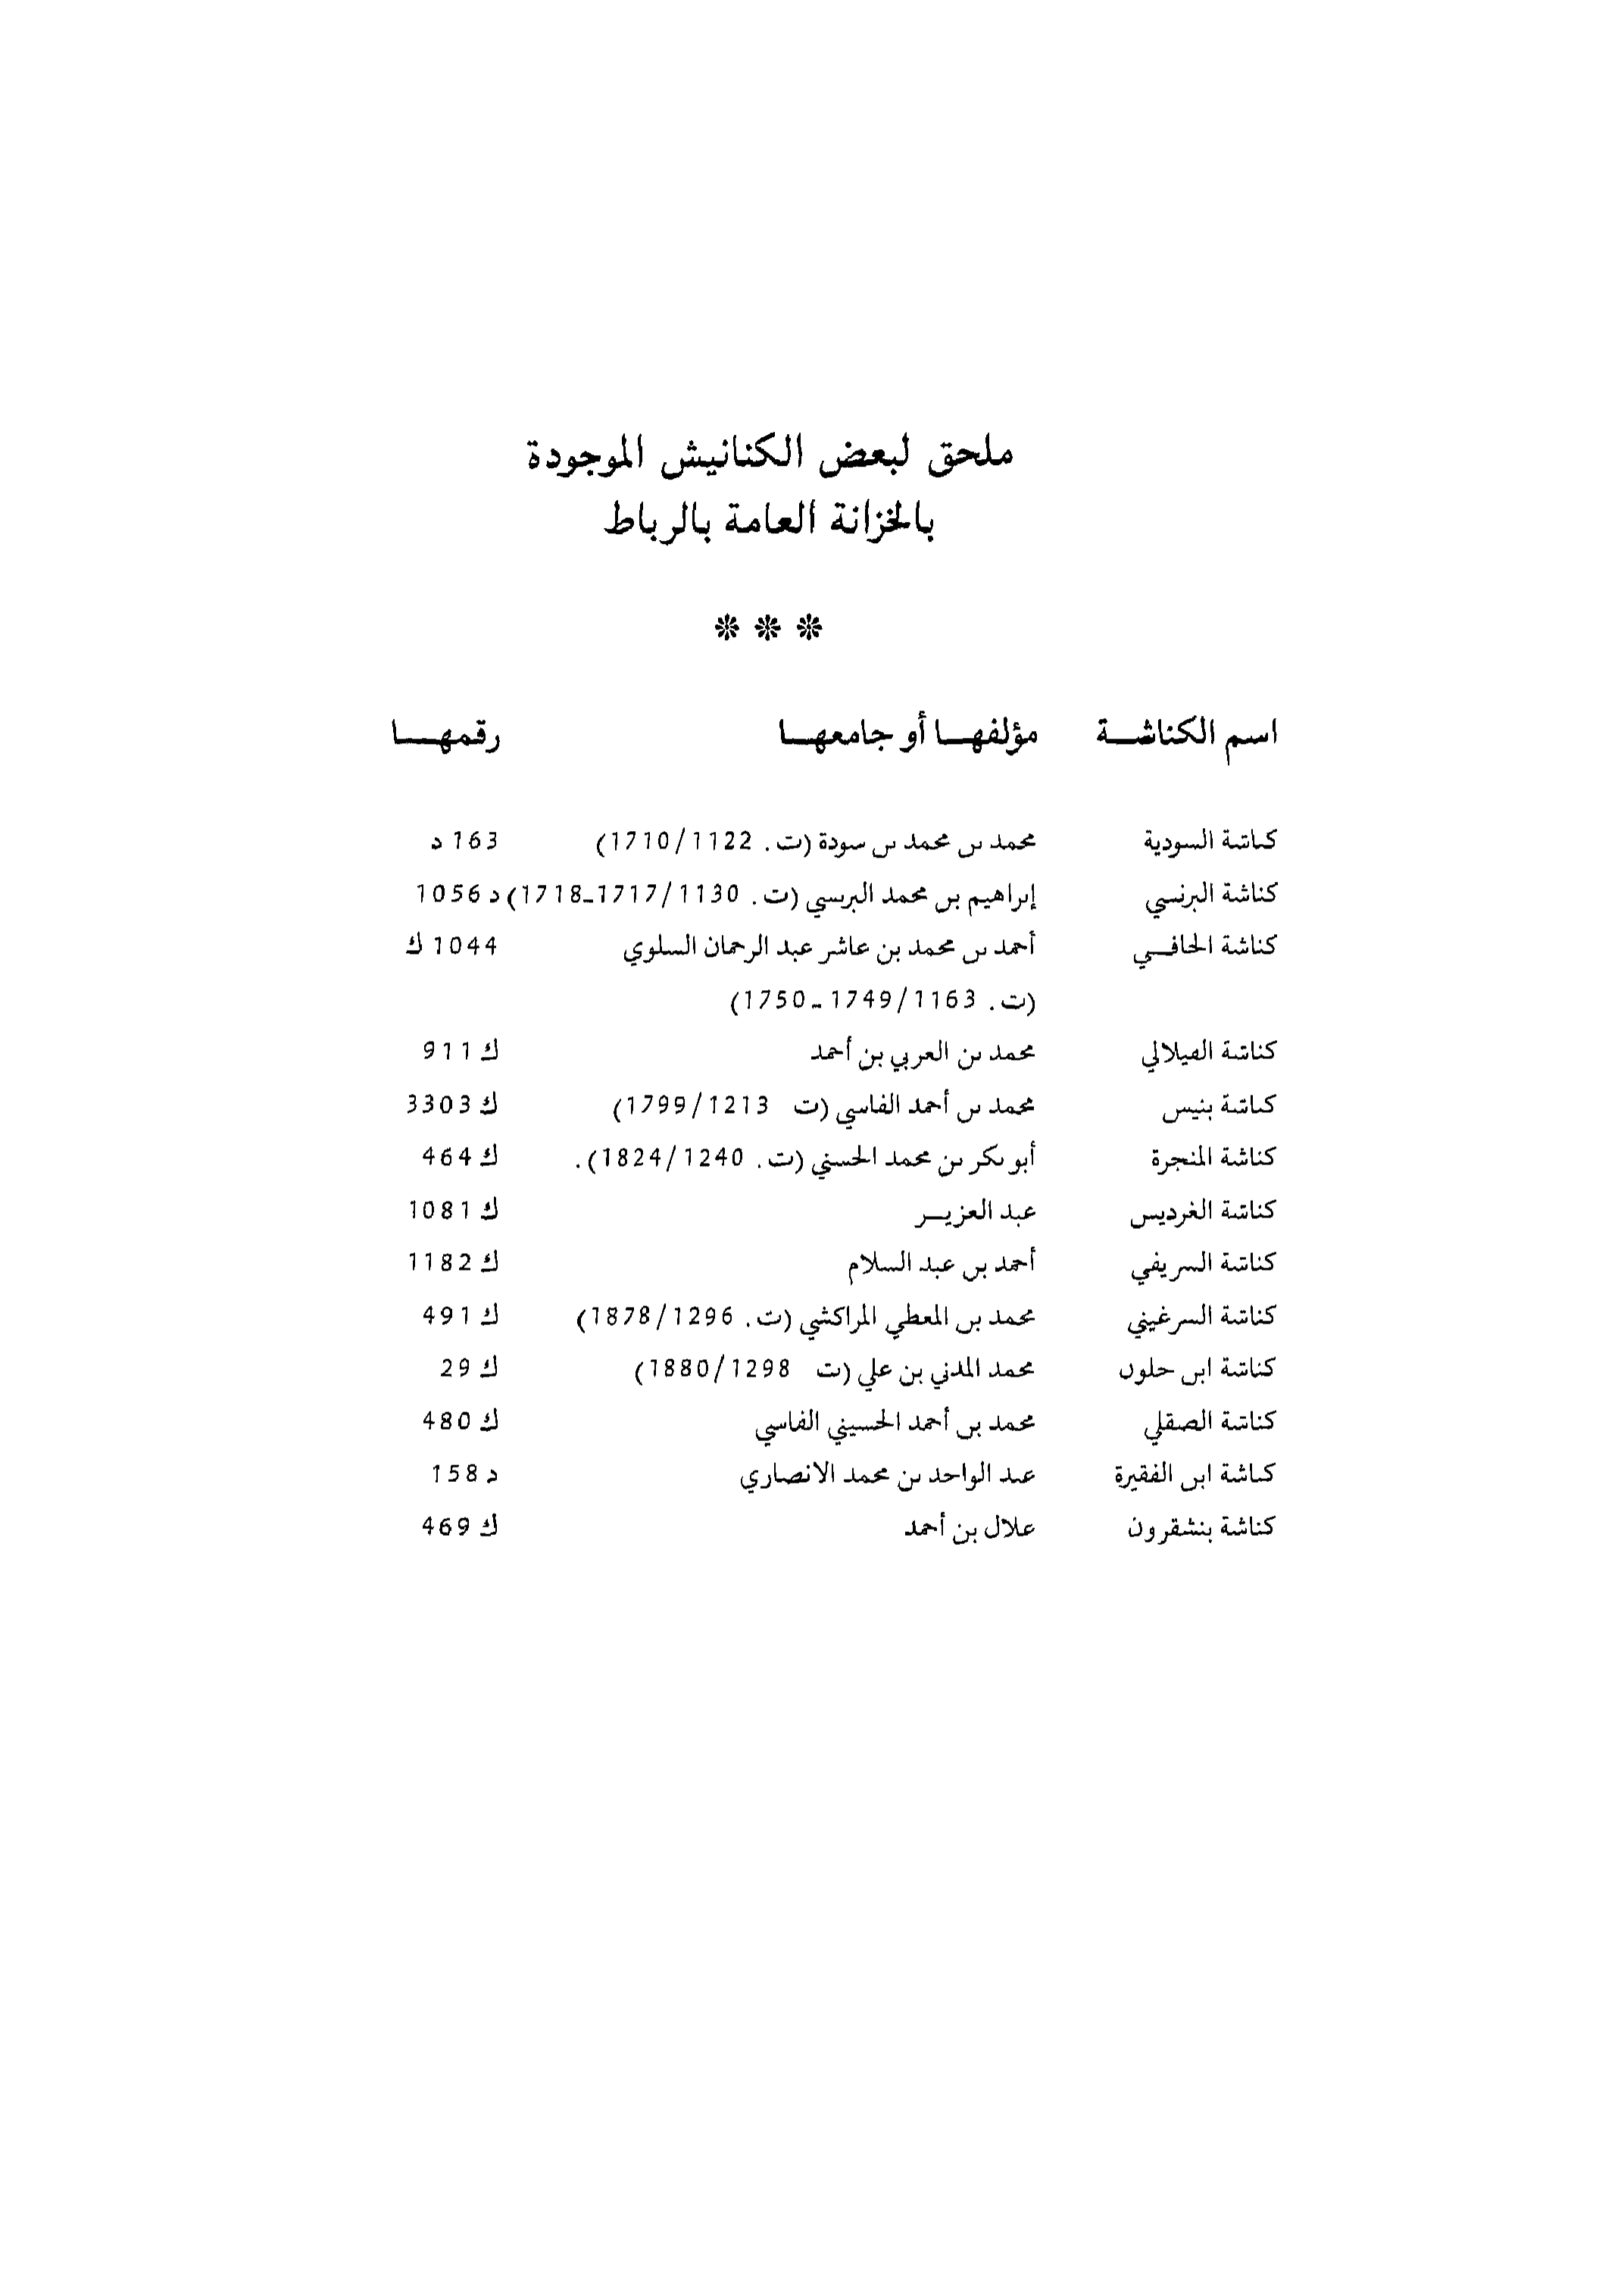 ملحق لبعض الكنانيش الموجودة
بالخزانة العامة بالرباط
اسم الكناشـة مؤلفهـا أو جامعهـا رقمهـا
كناشة السودية محمد بن محمد بن سودة (ت. 1710/1122) 163 د
كناشة البرنسي إبراهيم بن محمد البرنسي (ت. 1717/1130ـ1718) د 1056
كناشة الحافـي أحمد بن محمد بن عاشر عبد الرحمان السلوي 1044 ك
(ت. 1749/1163ـ1750)
كناشة الهيلالي محمد بن العربي بن أحمد ك 911
كناشة بنيس محمد بن أحمد الفاسي (ت 1799/1213) ك 3303
كناشة المنجرة أبو بكر بن محمد الحسني (ت. 1824/1240). ك 464
كناشة الغرديس عبد العزيـز ك 1081
كناشة السريفي أحمد بن عبد السلام ك 1182
كناشة السرغيني محمد بن المعطي المراكشي (ت. 1878/1296) ك 491
كناشة ابن حلون محمد المدني بن علي (ت 1880/1298) ك 29
كناشة الصقلي محمد بن أحمد الحسيني الفاسي ك 480
كناشة ابن الفقيرة عبد الواحد بن محمد الانصاري د 158
كناشة بنشقرون علال بن أحمد ك 469